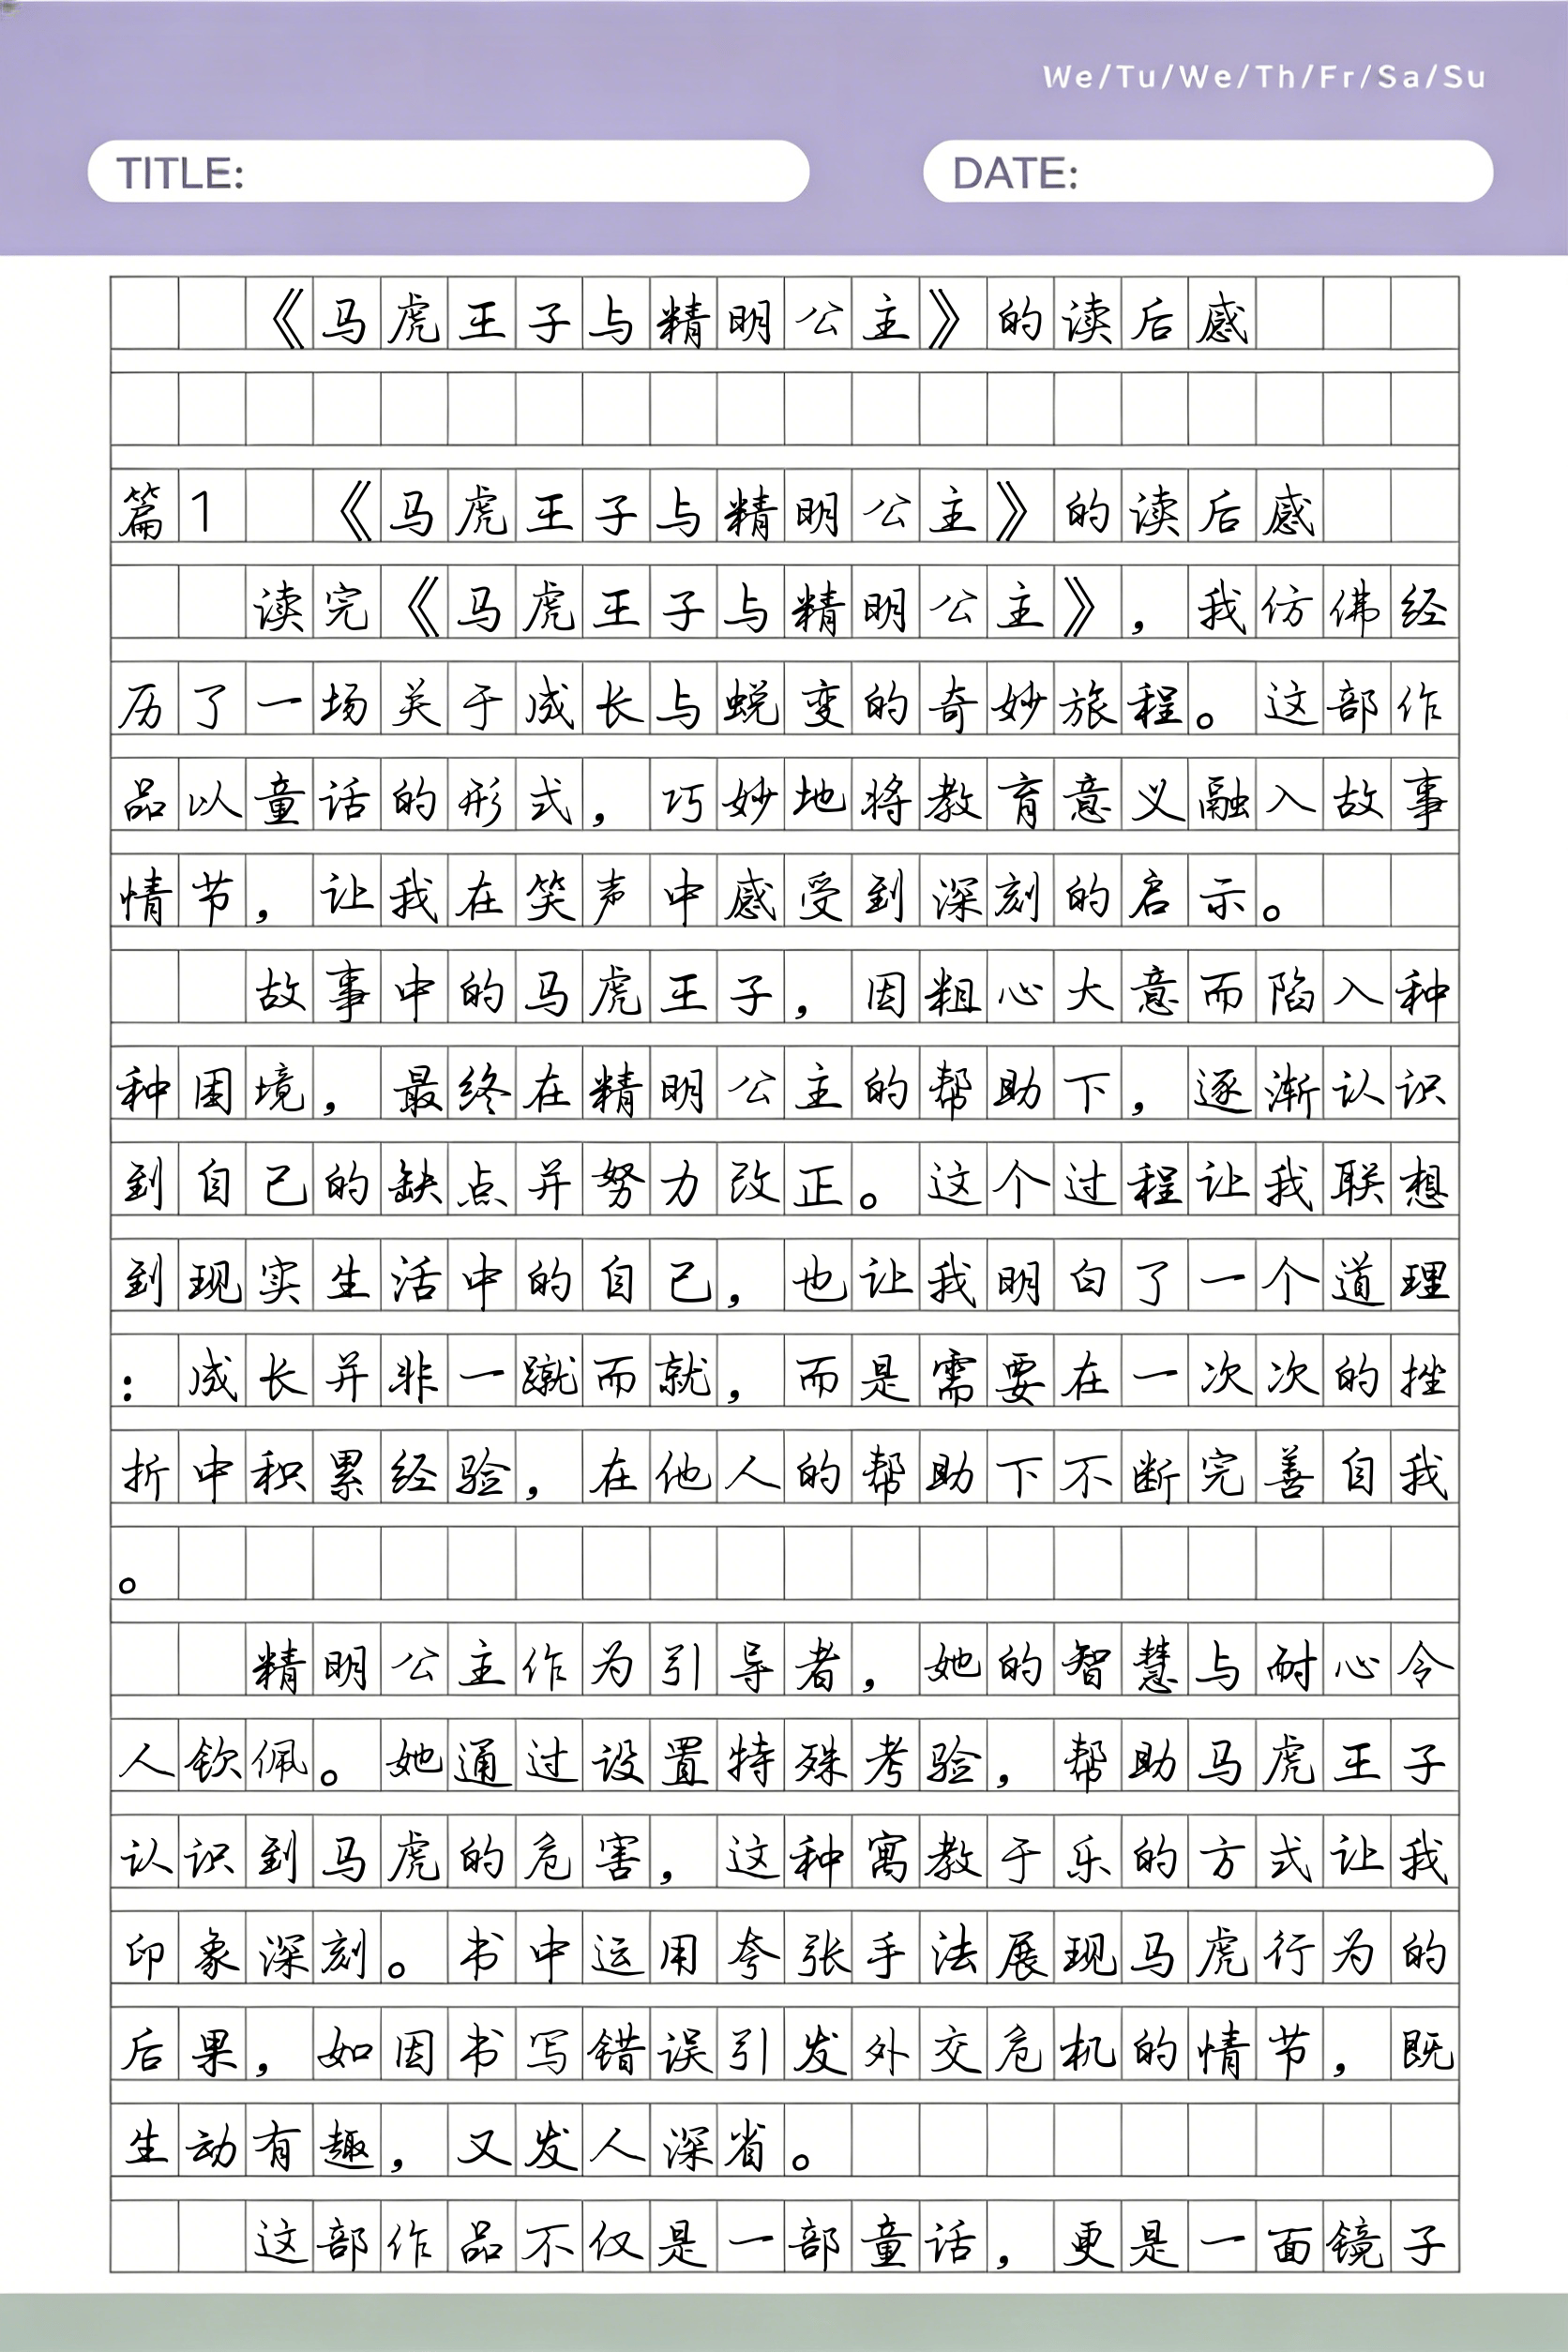 We/Tu/We/Th/Fr/Sa/Su
TITLE:
DATE:
《马虎王子与精明公主》的读后感
篇1 《马虎王子与精明公主》的读后感
读完《马虎王子与精明公主》，我仿佛经
历了一场关于成长与蜕变的奇妙旅程。这部作
品以童话的形式，巧妙地将教育意义融入故事
情节，让我在笑声中感受到深刻的启示。
故事中的马虎王子，因粗心大意而陷入种
种困境，最终在精明公主的帮助下，逐渐认识
到自己的缺点并努力改正。这个过程让我联想
到现实生活中的自己，也让我明白了一个道理
：成长并非一蹴而就，而是需要在一次次的挫
折中积累经验，在他人的帮助下不断完善自我
。
精明公主作为引导者，她的智慧与耐心令
人钦佩。她通过设置特殊考验，帮助马虎王子
认识到马虎的危害，这种寓教于乐的方式让我
印象深刻。书中运用夸张手法展现马虎行为的
后果，如因书写错误引发外交危机的情节，既
生动有趣，又发人深省。
这部作品不仅是一部童话，更是一面镜子